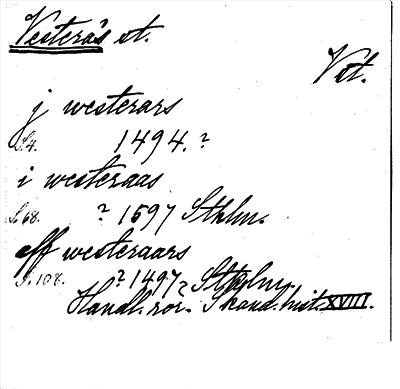 Vesterås st.
Vst.
j westerars
S.4. 1494.?
i westeraas
S.68. ? 1597 Sthlm.
aff westeraars
S.108. ? 1497, Sthlm.
Handl. rör. Skand. hist. XVIII.